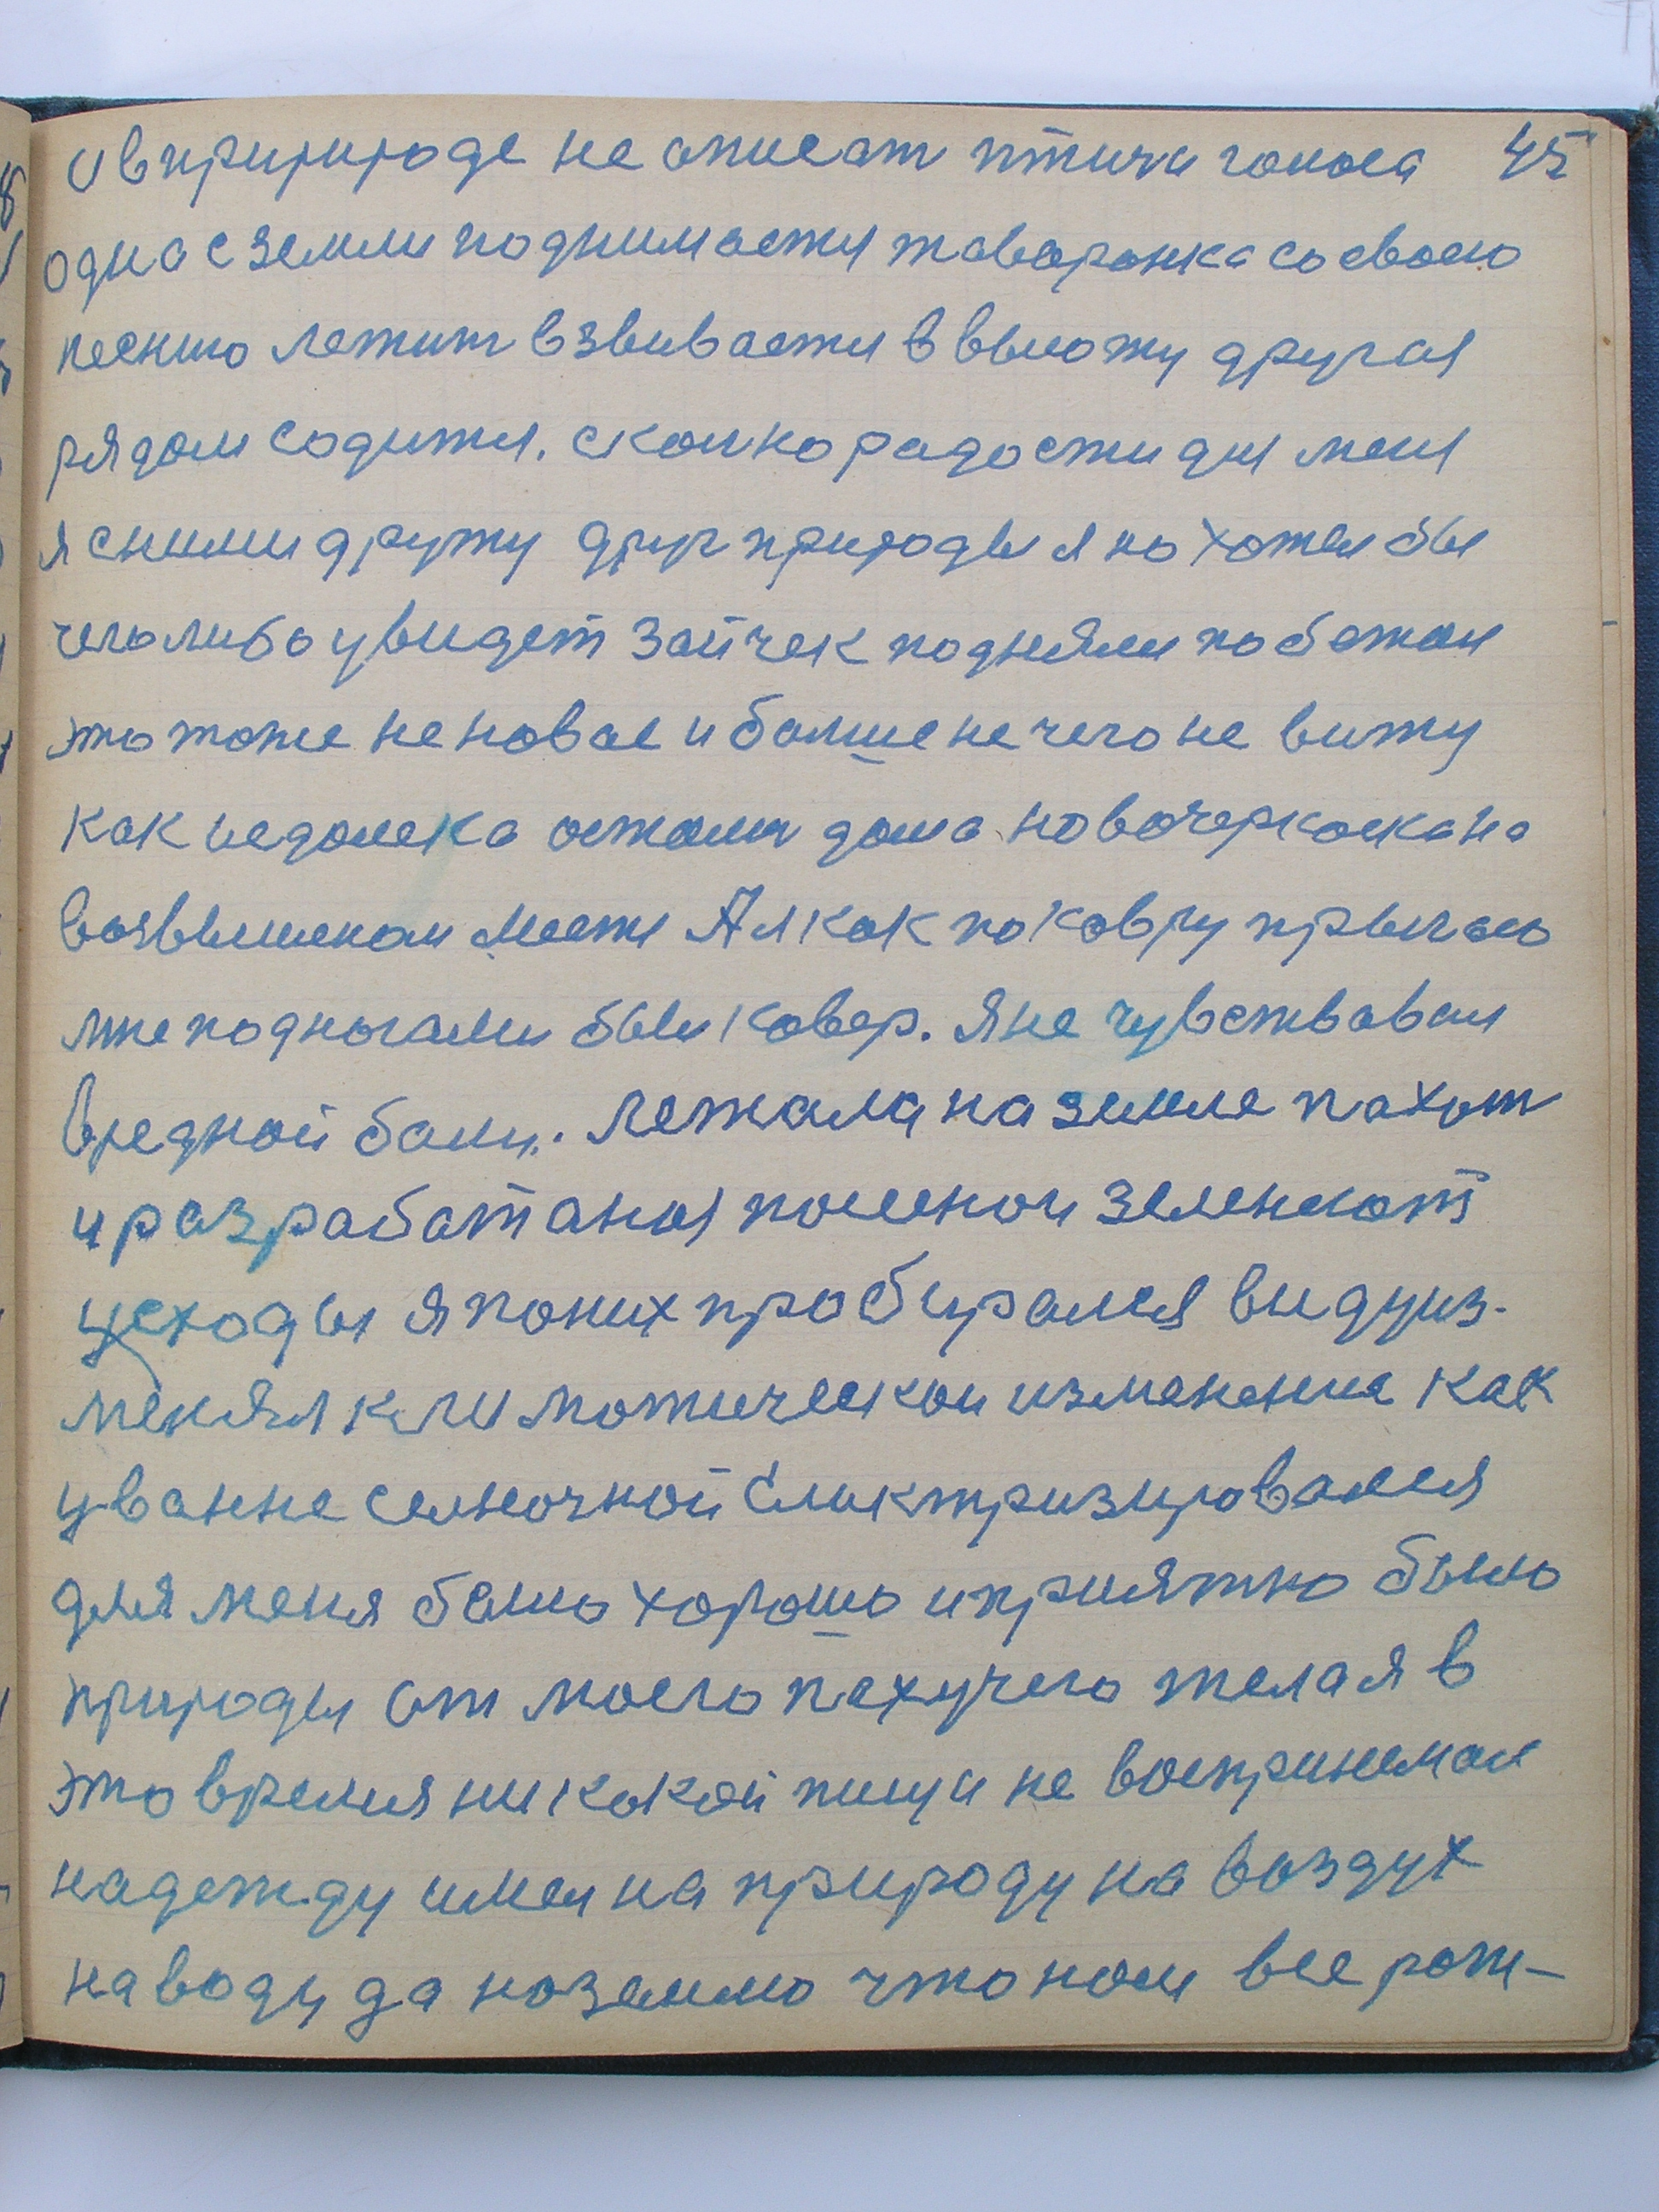 и в природе не описат птичи голоса 45
одна с земли поднимается жаваронка со своею
песнию летит взвивается в высоту другая
рядом содится. сколко радости для меня
я с ними дружу друг природы я по хотел бы
чего либо увидет зайчек подняли побежал
это тоже не новае и болше не чего не вижу
как недалека остали дома новочеркаска на
возвышеном месте А я как по ковру прыгаю
мне под ногами был ковер. Я не чувствавал
вредной боли. лежала на земле пахот
и разработаная посеной зеленкот
усходы я по них пробирался виду из-
менял климотической изменение как
у ванне солночной Еликтризировался
для меня было хорошо и приятно было
природы от моего пахучего тела я в
это время ни какой пищи не воспринемал
надежду имел на природу на воздух
на воду да на землю что нам все рож-